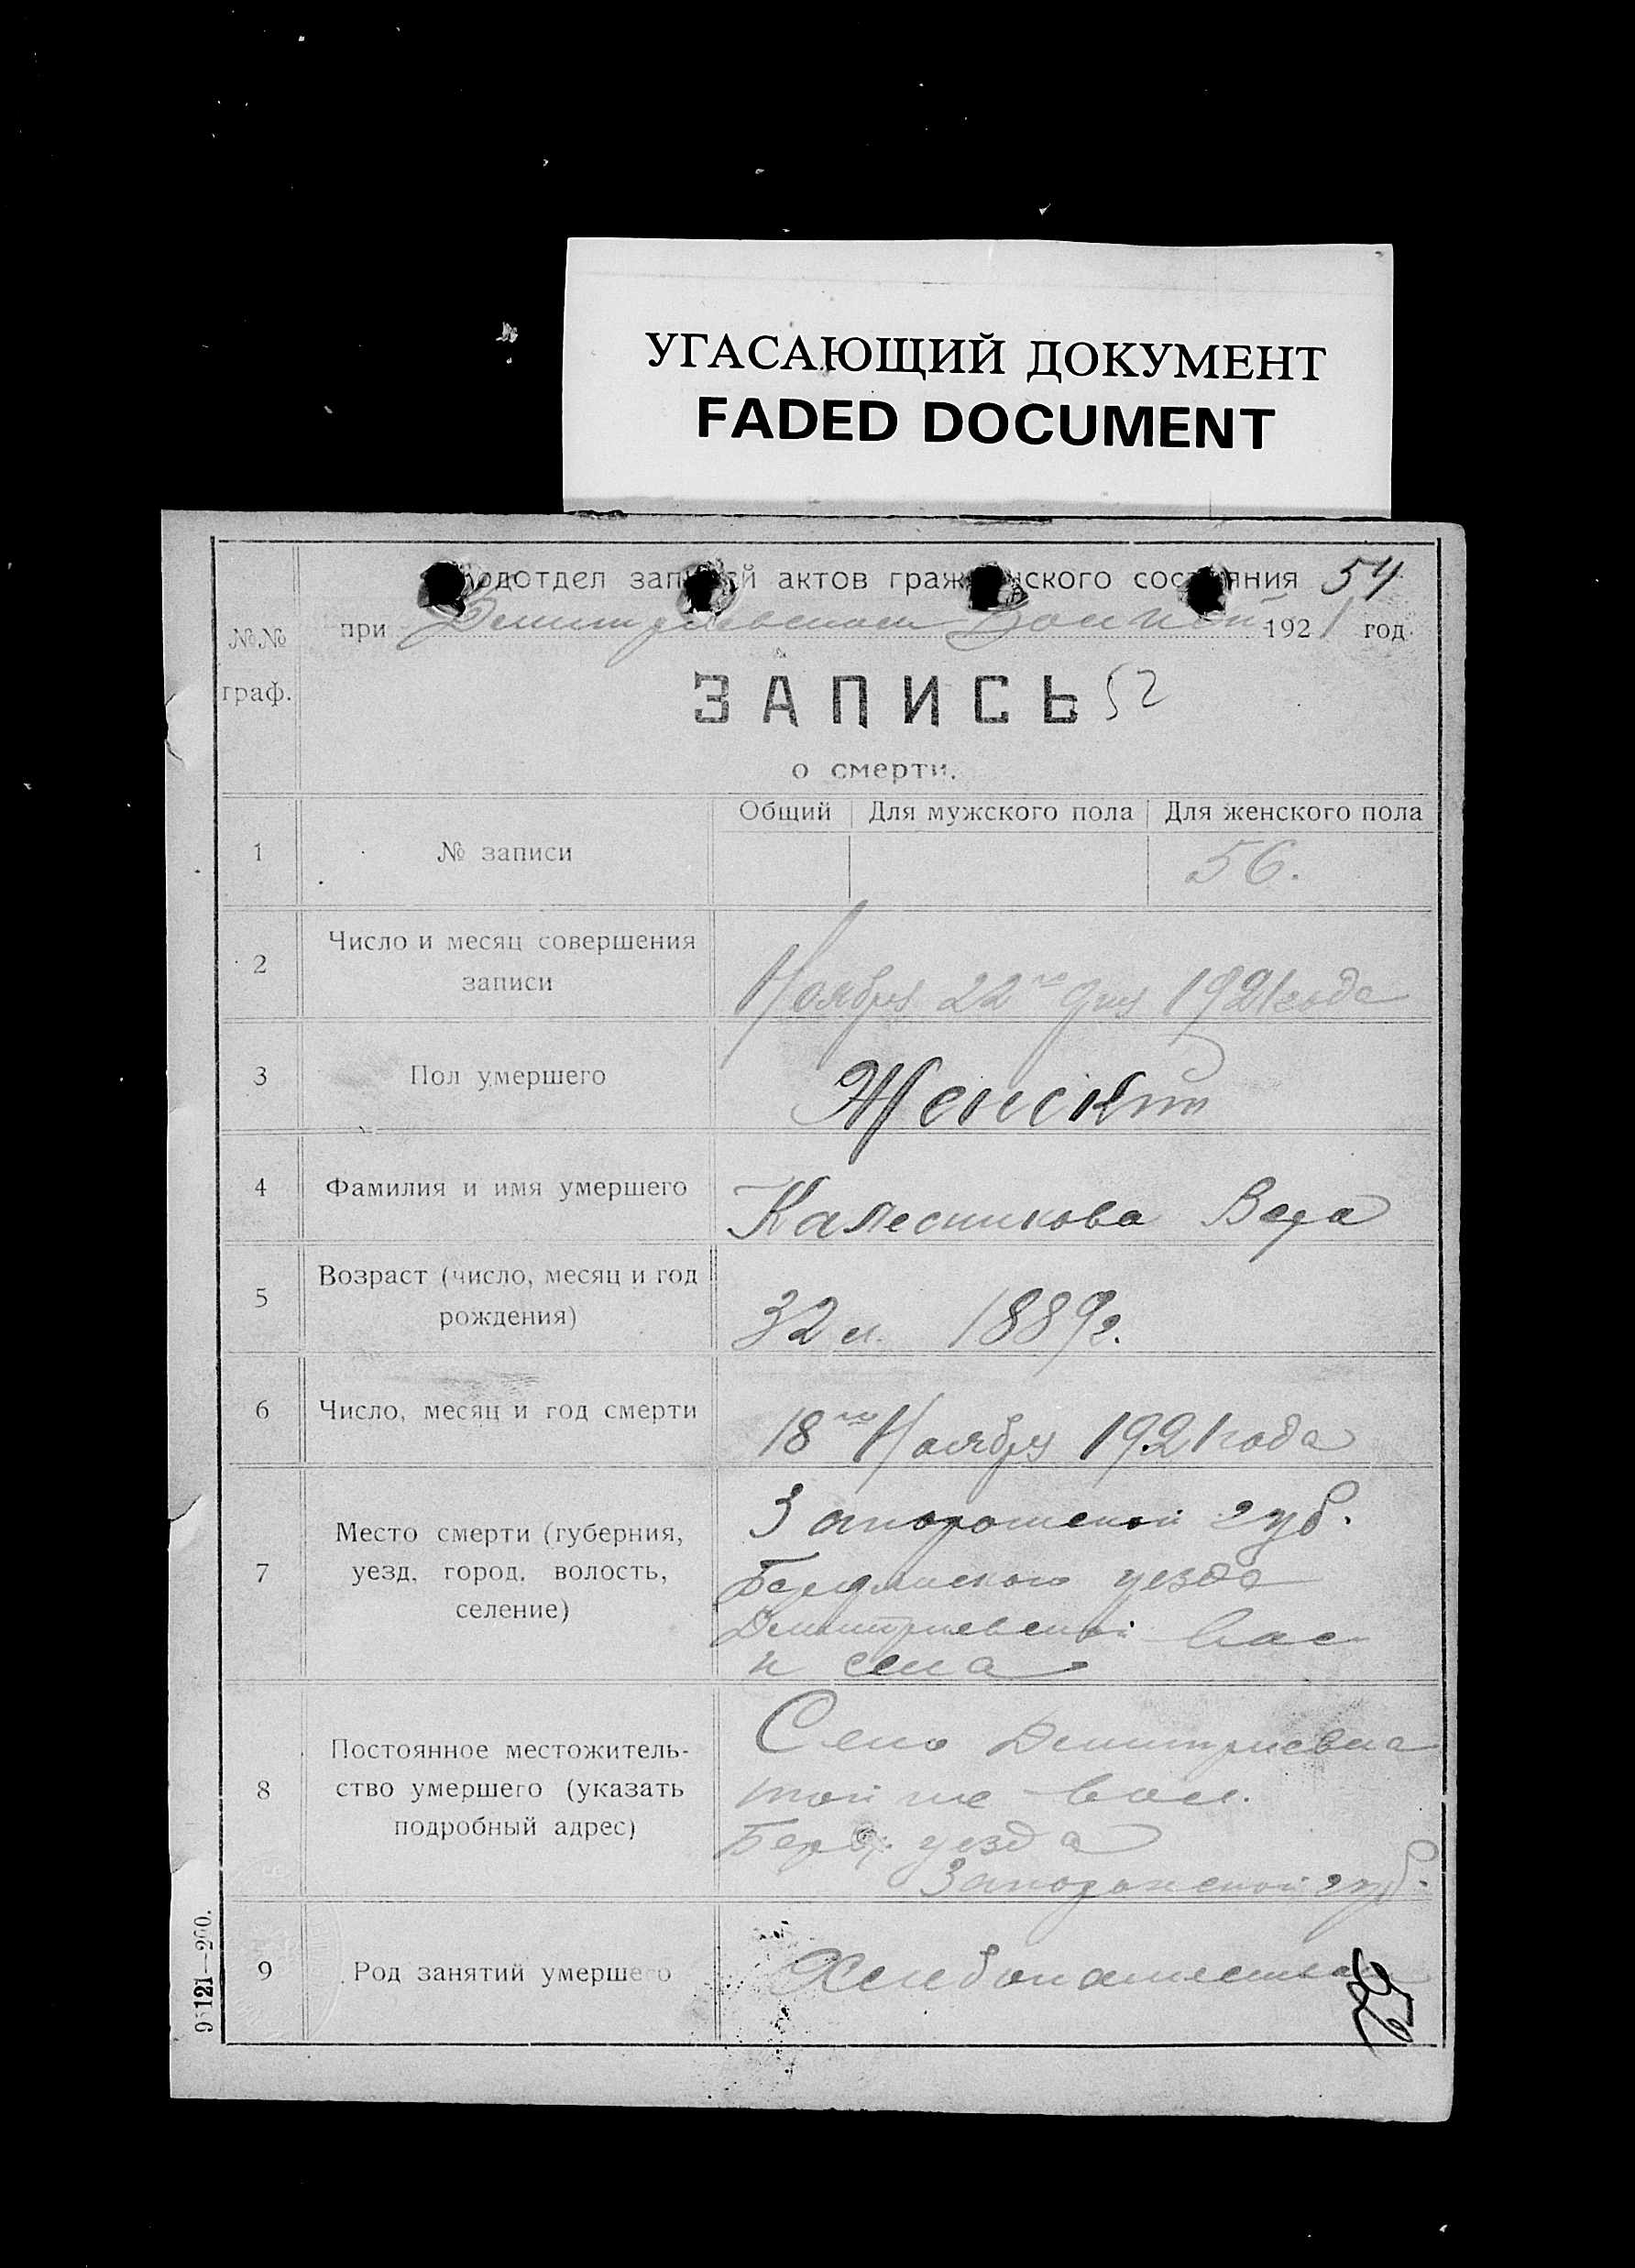 УГАСАЮЩИЙ ДОКУМЕНТ
FADED DOCUMENT
Подотдел записей актов гражданского состояния 54
№№ граф. при Дмитриевском 1921 год.
ЗАПИСЬ 52
о смерти.
Общий Для мужского пола Для женского пола
1 № записи 56.
2 Число и месяц совершения записи Ноября 22го дня 1921 года
3 Пол умершего Женский
4 Фамилия и имя умершего Калесникова Вера
5 Возраст (число, месяц и год рождения) 32 л. 1889 г.
6 Число, месяц и год смерти 18го Ноября 1921 года
7 Место смерти (губерния, уезд, город, волость, селение) Запорошской губ.
Бердянского уезда
Дмитриевской вол
и села
8 Постоянное местожительство умершего (указать подробный адрес) Село Дмитриевка
той же вол.
Берд. уезда
Запорожской губ.
9 Род занятий умершего
52